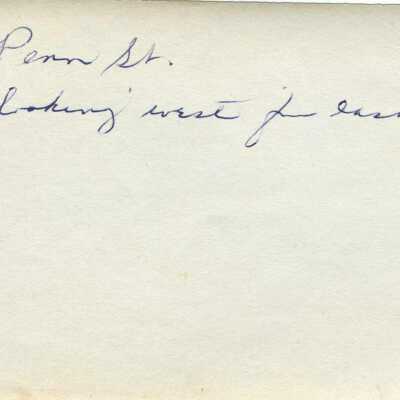 Penn St.
looking west fm eas